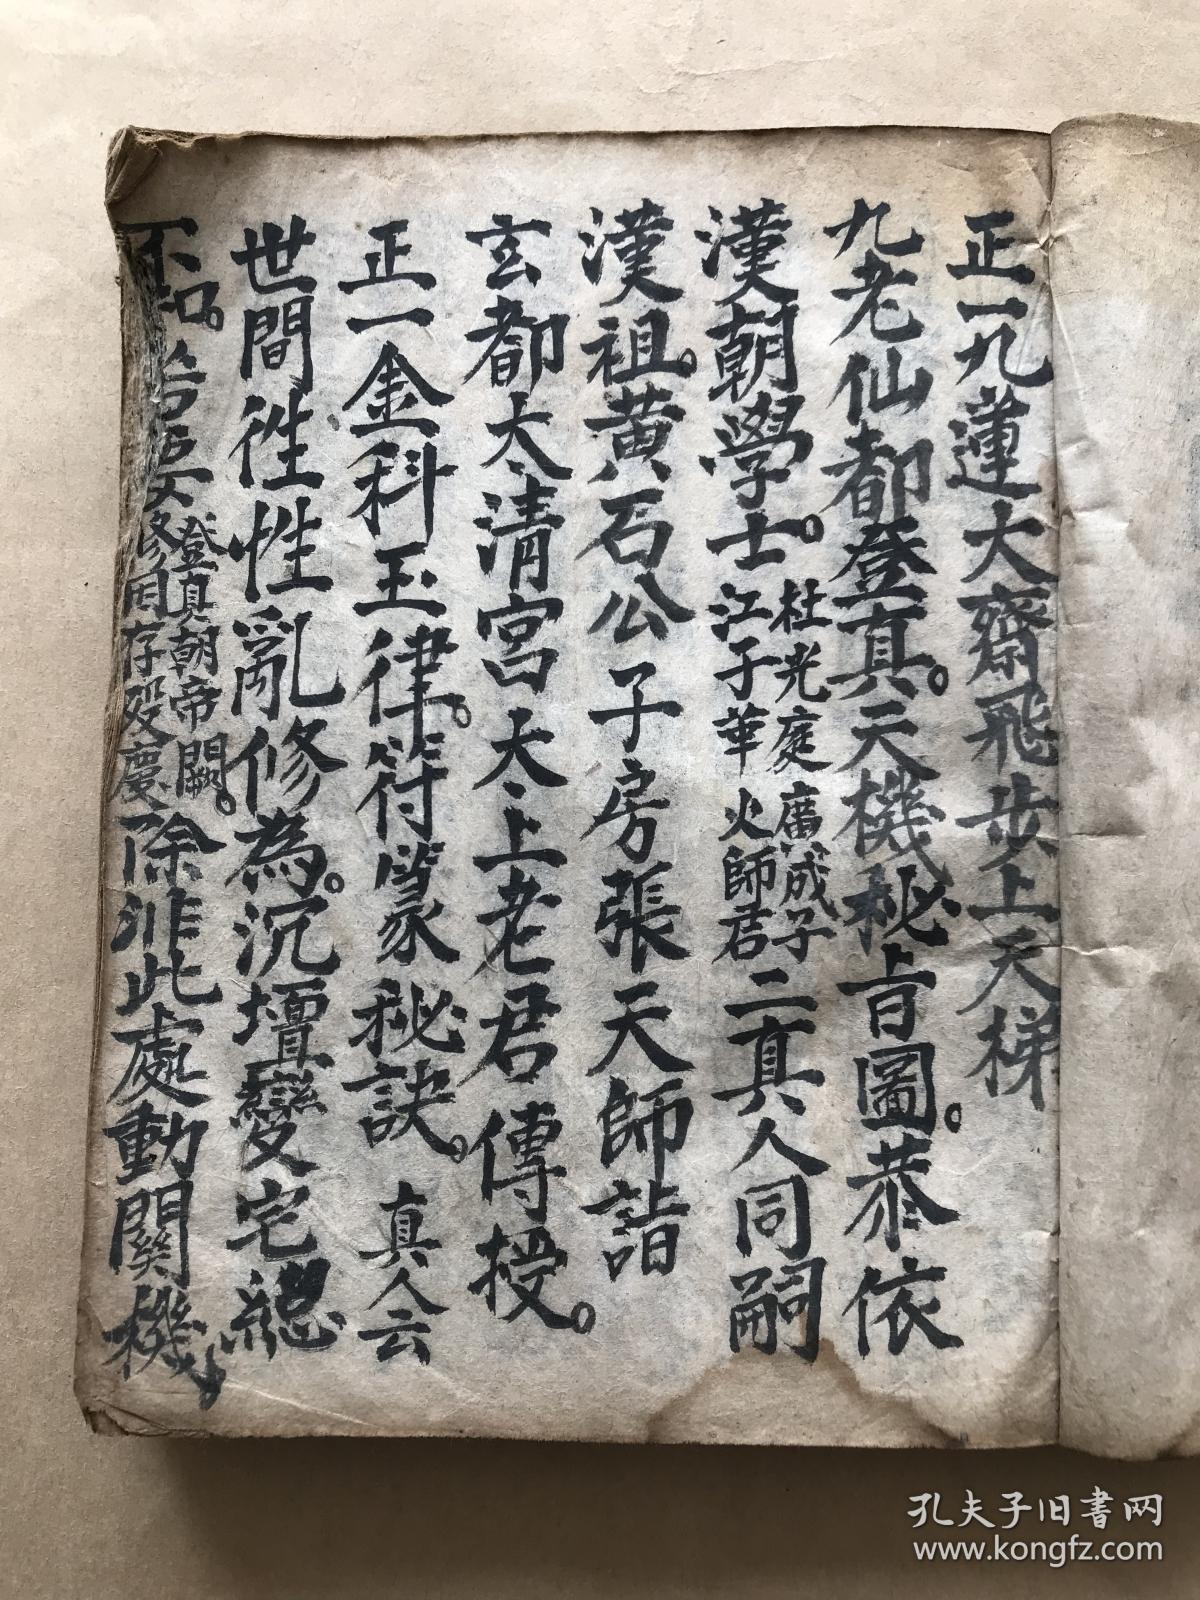 正一九蓮大齋飛步上天梯
九老仙都登真。天機秘旨圖。恭依
漢朝學士。杜光庭 廣成子
江子華 火師君 二真人同嗣
漢祖。黃石公子房張天師詣
玄都太清宮太上老君傳授。
正一金科玉律。符篆秘訣。真人云
世間徃徃亂修為。沉壇變宅總
不知。若要 登真朝帝闕。
修因存歿慶 除非此處動關機
孔夫子旧书网
www.kongfz.com